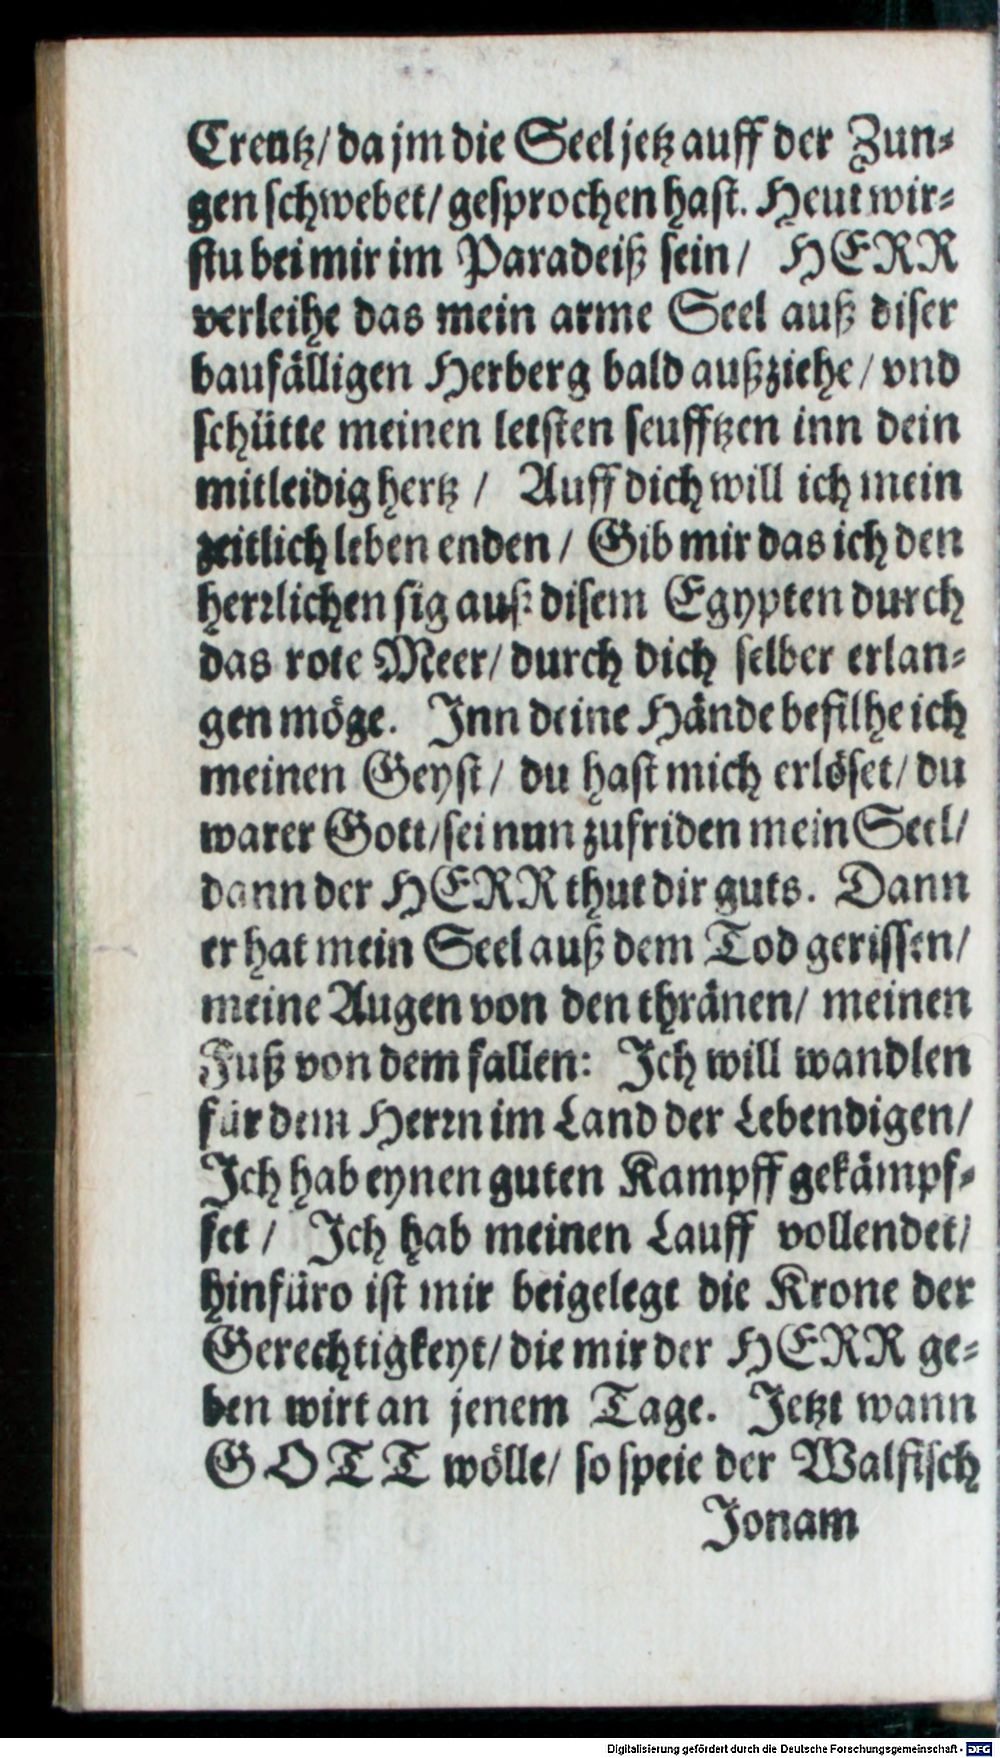 Creutz/ da jm die Seel jetz auff der Zun⸗
gen schwebet/ gesprochen hast. Heut wir⸗
stu bei mir im Paradeiß sein/ HERR
verleihe das mein arme Seel auß diser
baufälligen Herberg bald außziehe/ vnd
schütte meinen letsten seufftzen inn dein
mitleidig hertz/ Auff dich will ich mein
zeitlich leben enden/ Gib mir das ich den
herrlichen sig auß disem Egypten durch
das rote Meer/ durch dich selber erlan⸗
gen möge. Inn deine Hände befilhe ich
meinen Geyst/ du hast mich erlöset/ du
warer Gott/ sei nun zufriden mein Seel/
dann der HERR thut dir guts. Dann
er hat mein Seel auß dem Tod gerissen/
meine Augen von den thränen/ meinen
Fuß von dem fallen: Ich will wandlen
für dem Herrn im Land der Lebendigen/
Ich hab eynen guten Kampff gekämpf⸗
fet/ Ich hab meinen Lauff vollendet/
hinfüro ist mir beigelegt die Krone der
Gerechtigkeyt/ die mir der HERR ge⸗
ben wirt an jenem Tage. Jetzt wann
GOTT wölle/ so speie der Walfisch
Jonam
Digitalisierung gefördert durch die Deutsche Forschungsgemeinschaft - DFG